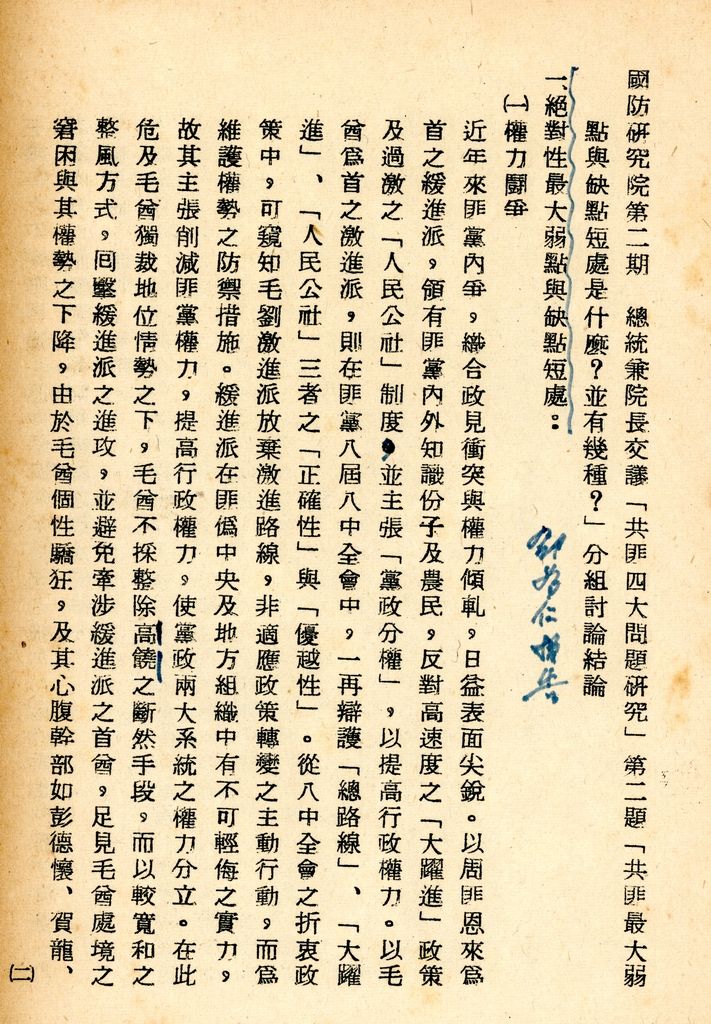 國防研究院第二期　總統兼院長交議「共匪四大問題研究」第二題「共匪最大弱
點與缺點短處是什麼？並有幾種？」分組討論結論
一、絕對性最大弱點與缺點短處：
㈠權力鬪爭
近年來匪黨內爭，織合政見衝突與權力傾軋，日益表面尖銳。以周匪恩來為
首之緩進派，領有匪黨內外知識份子及農民，反對高速度之「大躍進」政策
及過激之「人民公社」制度，並主張「黨政分權」，以提高行政權力。以毛
酋為首之激進派，則在匪黨八屆八中全會中，一再辯護「總路線」、「大躍
進」、「人民公社」三者之「正確性」與「優越性」。從八中全會之折衷政
策中，可窺知毛劉激進派放棄激進路線，非適應政策轉變之主動行動，而為
維護權勢之防禦措施。緩進派在匪偽中央及地方組織中有不可輕侮之實力，
故其主張削減匪黨權力，提高行政權力，使黨政兩大系統之權力分立。在此
危及毛酋獨裁地位情勢之下，毛酋不採整除高饒之斷然手段，而以較寬和之
整風方式，回擊緩進派之進攻，並避免牽涉緩進派之首酋，足見毛酋處境之
窘困與其權勢之下降，由於毛酋個性驕狂，及其心腹幹部如彭德懷、賀龍、
㈡